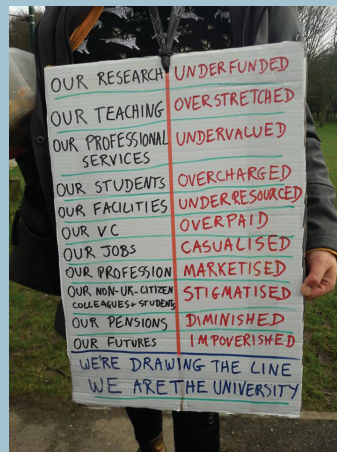 OUR RESEARCH UNDERFUNDED
OUR TEACHING OVERSTRETCHED
OUR PROFESSIONAL UNDERVALUED
SERVICES
OUR STUDENTS OVERCHARGED
OUR FACILITIES UNDERRESOURCED
OUR VC OVERPAID
OUR JOBS CASUALISED
OUR PROFESSION MARKETISED
OUR NON-UK-CITIZEN STIGMATISED
COLLEAGUES + STUDENTS
OUR PENSIONS DIMINISHED
OUR FUTURES IMPOVERISHED
WE'RE DRAWING THE LINE
WE ARE THE UNIVERSITY